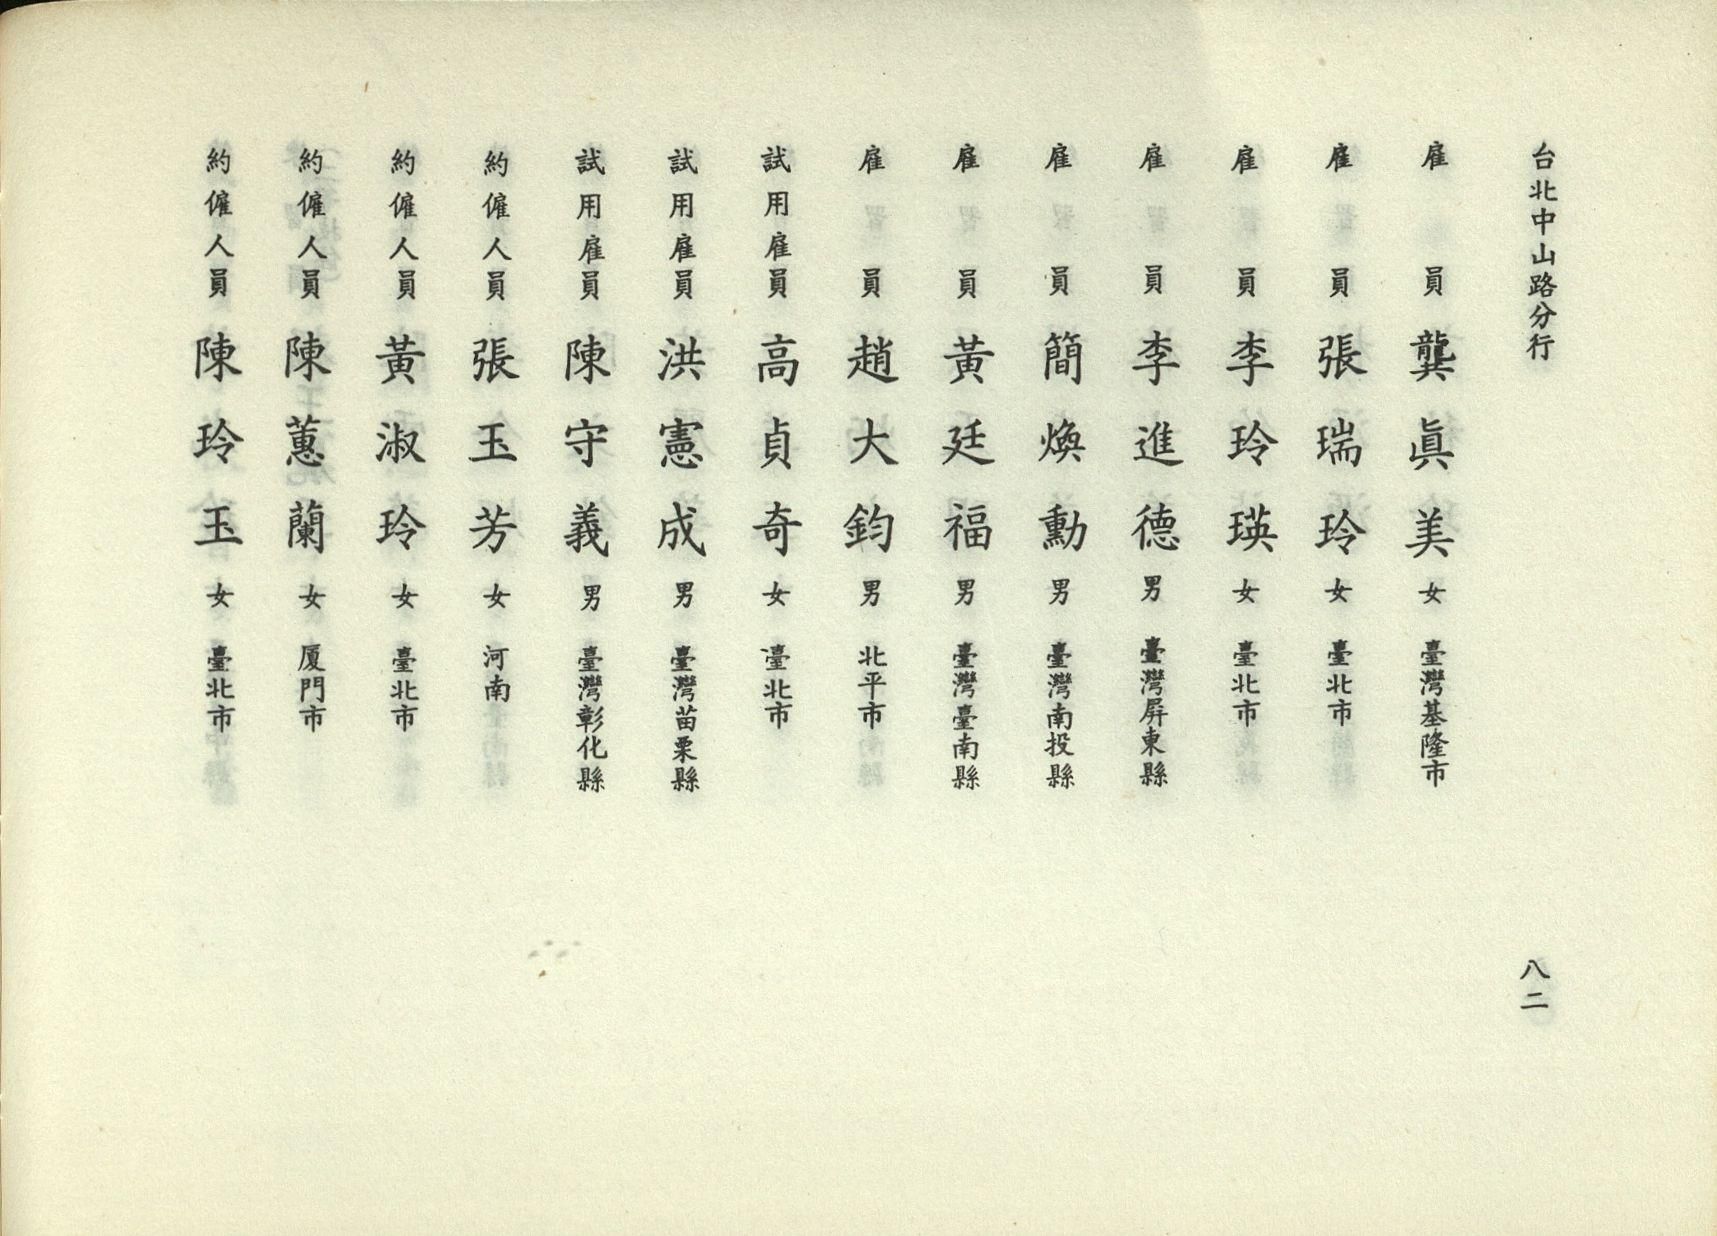 台北中山路分行
八二
雇員龔眞美女臺灣基隆市
雇員張瑞玲女臺北市
雇員李玲瑛女臺北市
雇員李進德男臺灣屏東縣
雇員簡煥勳男臺灣南投縣
雇員黃廷福男臺灣臺南縣
雇員趙大鈞男北平市
試用雇員高貞奇女臺北市
試用雇員洪憲成男臺灣苗栗縣
試用雇員陳守義男臺灣彰化縣
約僱人員張玉芳女河南
約僱人員黃淑玲女臺北市
約僱人員陳蕙蘭女厦門市
約僱人員陳玲玉女臺北市